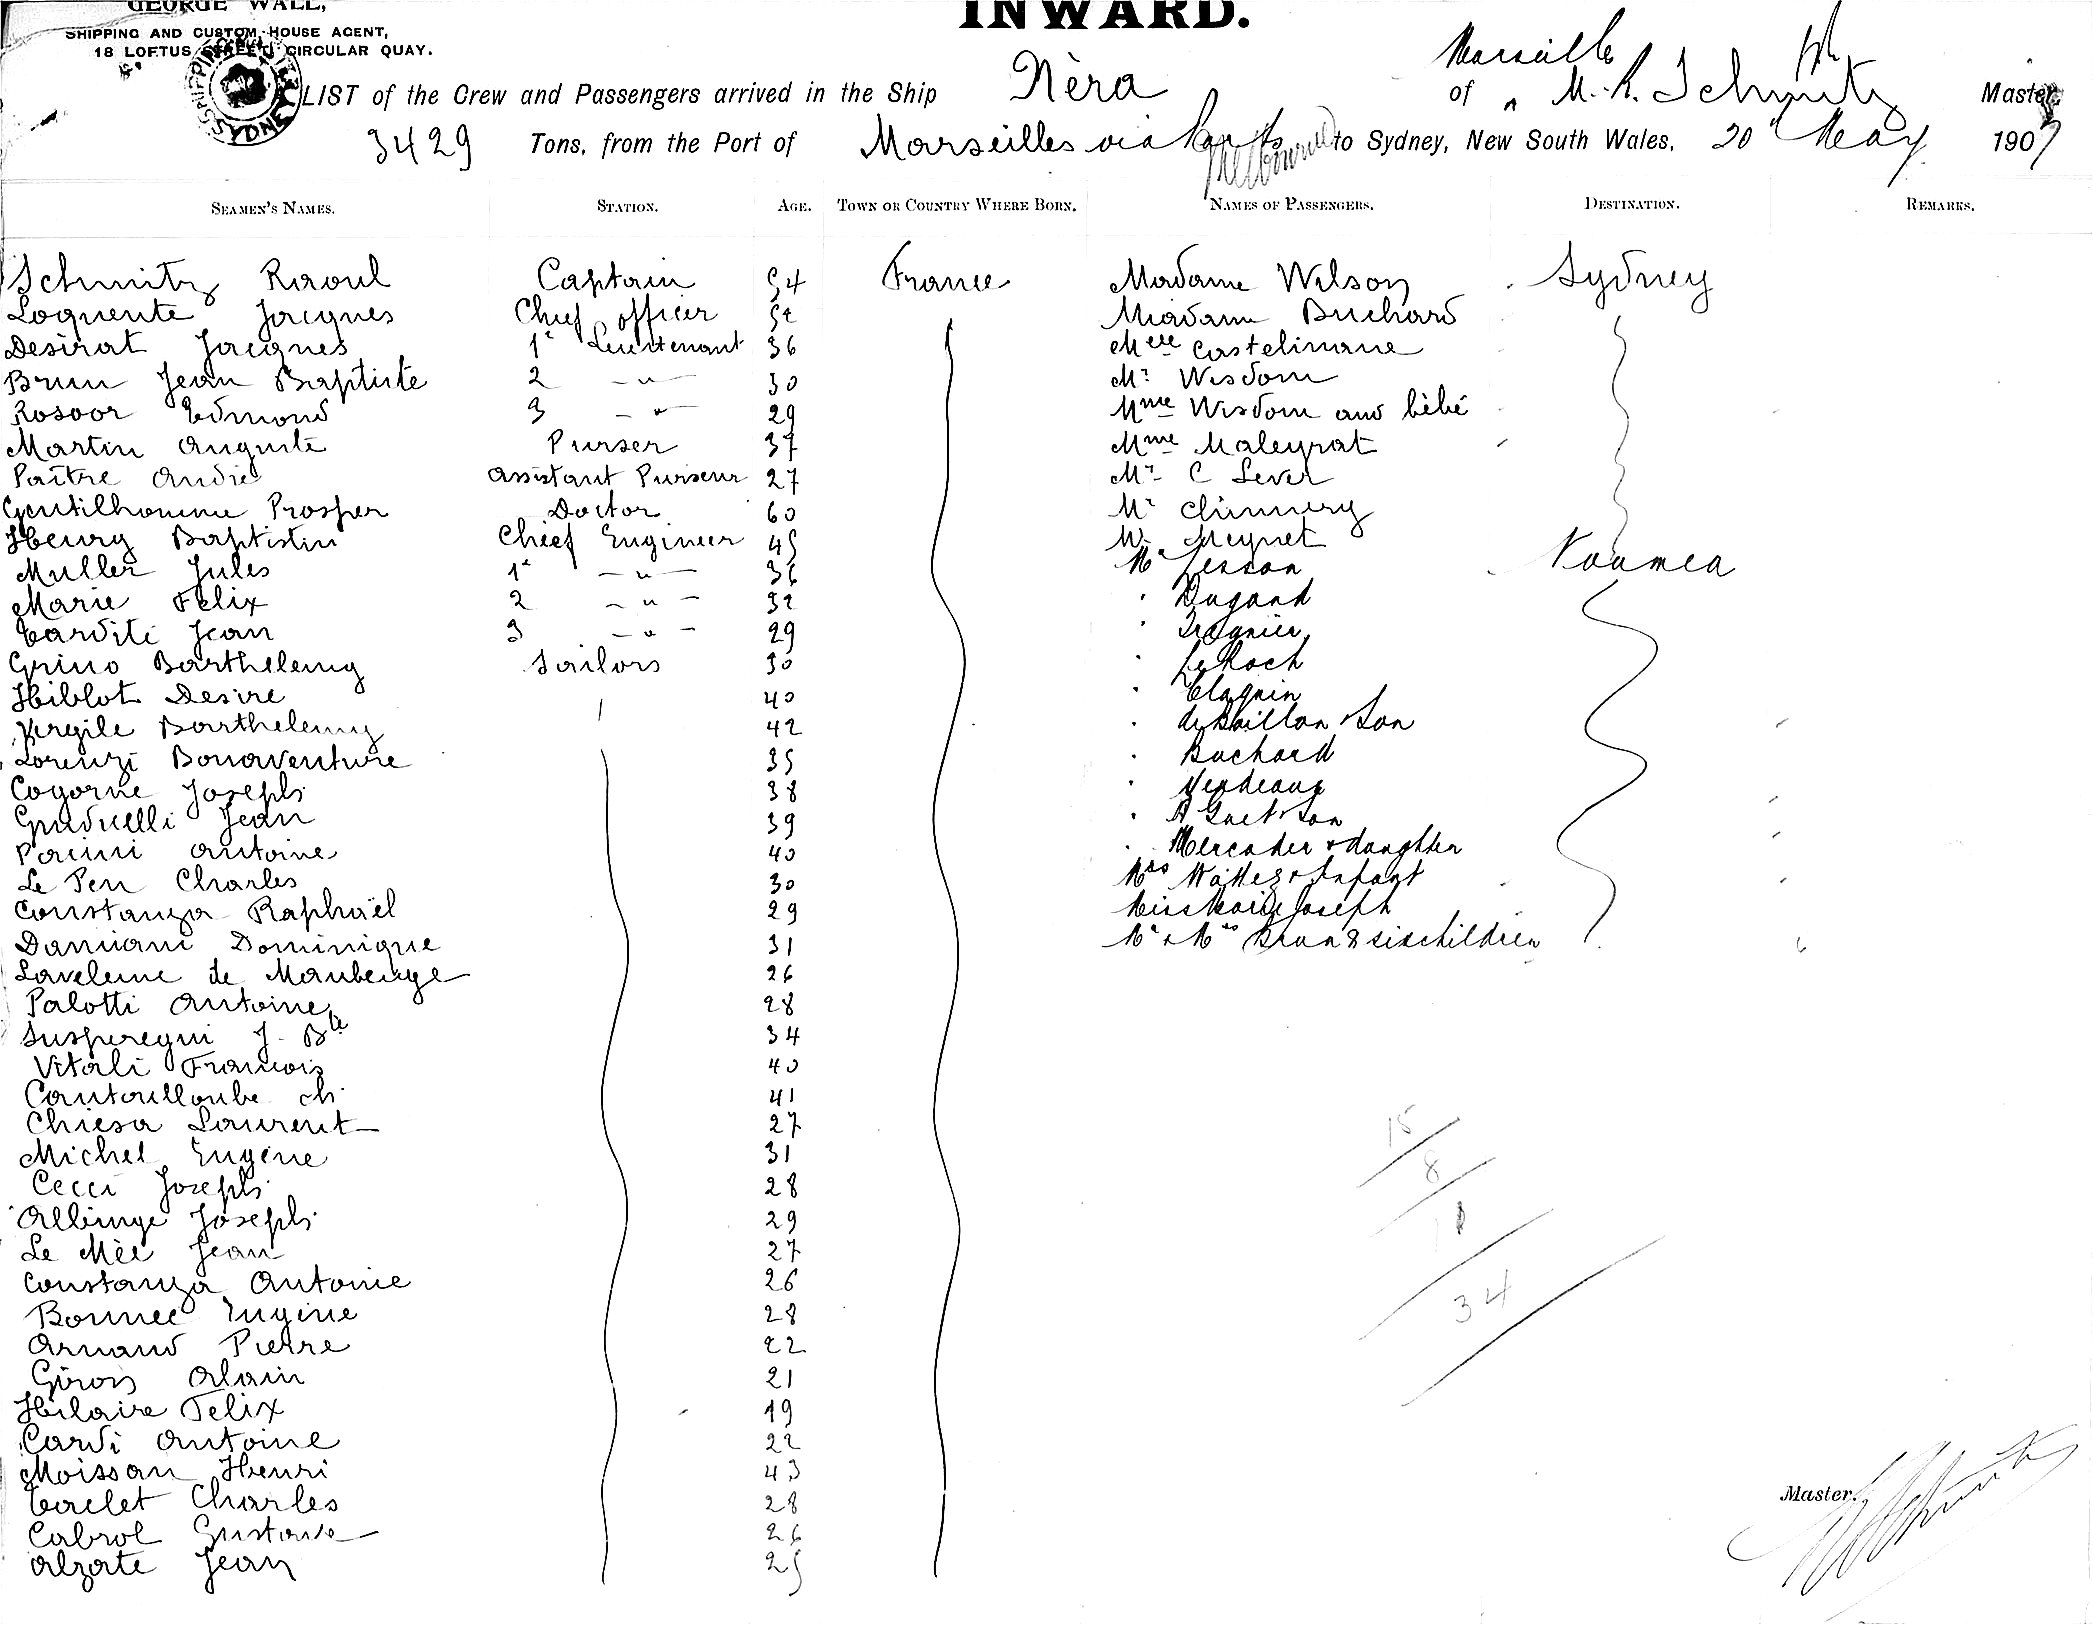 GEORGE WALL,
SHIPPING AND CUSTOM-HOUSE AGENT,
18 LOFTUS STREET, CIRCULAR QUAY.
INWARD.
SYDNEY
LIST of the Crew and Passengers arrived in the Ship Nèra of Marseille M. R. Schmitz Master,
3429 Tons, from the Port of Marseilles via Ports Melbourne to Sydney, New South Wales, 20th May 1907
SEAMEN'S NAMES. STATION. AGE. TOWN OR COUNTRY WHERE BORN. NAMES OF PASSENGERS. DESTINATION. REMARKS.
Schmitz Raoul Captain 54 France Madame Wilson Sydney
Loquente Jacques Chief officer 52 Madame Buchard
Desirat Jacques 1e Lieutenant 36 Melle Castelimane
Brun Jean Baptiste 2 -"- 30 Mr Wisdom
Rosoor Edmond 3 -"- 29 Mme Wisdom and bébé
Martin Auguste Purser 37 Mme Maleyrat
Paître André assistant Purseur 27 Mr C Lever
Gentilhomme Prosper Doctor 60 Mr Chinnery
Henry Baptistin Chief Engineer 45 Mr Meynet
Muller Jules 1e -"- 36 Mr Lesson Noumea
Marie Felix 2 -"- 32 " Dugand
Tarditi Jean 3 -"- 29 " Tragnier
Grino Barthelemy Sailors 30 " Le Roch
Hiblot Desire 40 " Claquin
Vergile Barthelemy 42 " de Baillon & Son
Lorenzi Bonaventure 35 " Buchard
Cogorne Joseph 38 " Verdeaux
Graducelli Jean 39 " A Guet & Son
Paccini Antoine 40 " Mercadier & daughter
Le Pen Charles 30 Mrs Watters & Infant
Constanza Raphaël 29 Miss Marie Joseph
Damiani Dominique 31 Mr & Mrs Brun & six children
Laveleine de Maubeuge 26
Palotti Antoine 28
Susperegui J. Bte 34
Vitali Francois 40
Cantoulloube ch. 41
Chiesa Laurent 27
Michel Eugène 31
Cecci Joseph 28
Albinge Joseph 29
Le Mée Jean 27
Constanza Antoine 26
Bonnec Eugène 28
Arnaud Pierre 22
Girois Alain 21
Hilaire Felix 19
Cardi Antoine 22
Moissan Henri 43
Taclet Charles 28
Cabrol Gustave 26
Alzate Jean 25
15
8
34
Master.